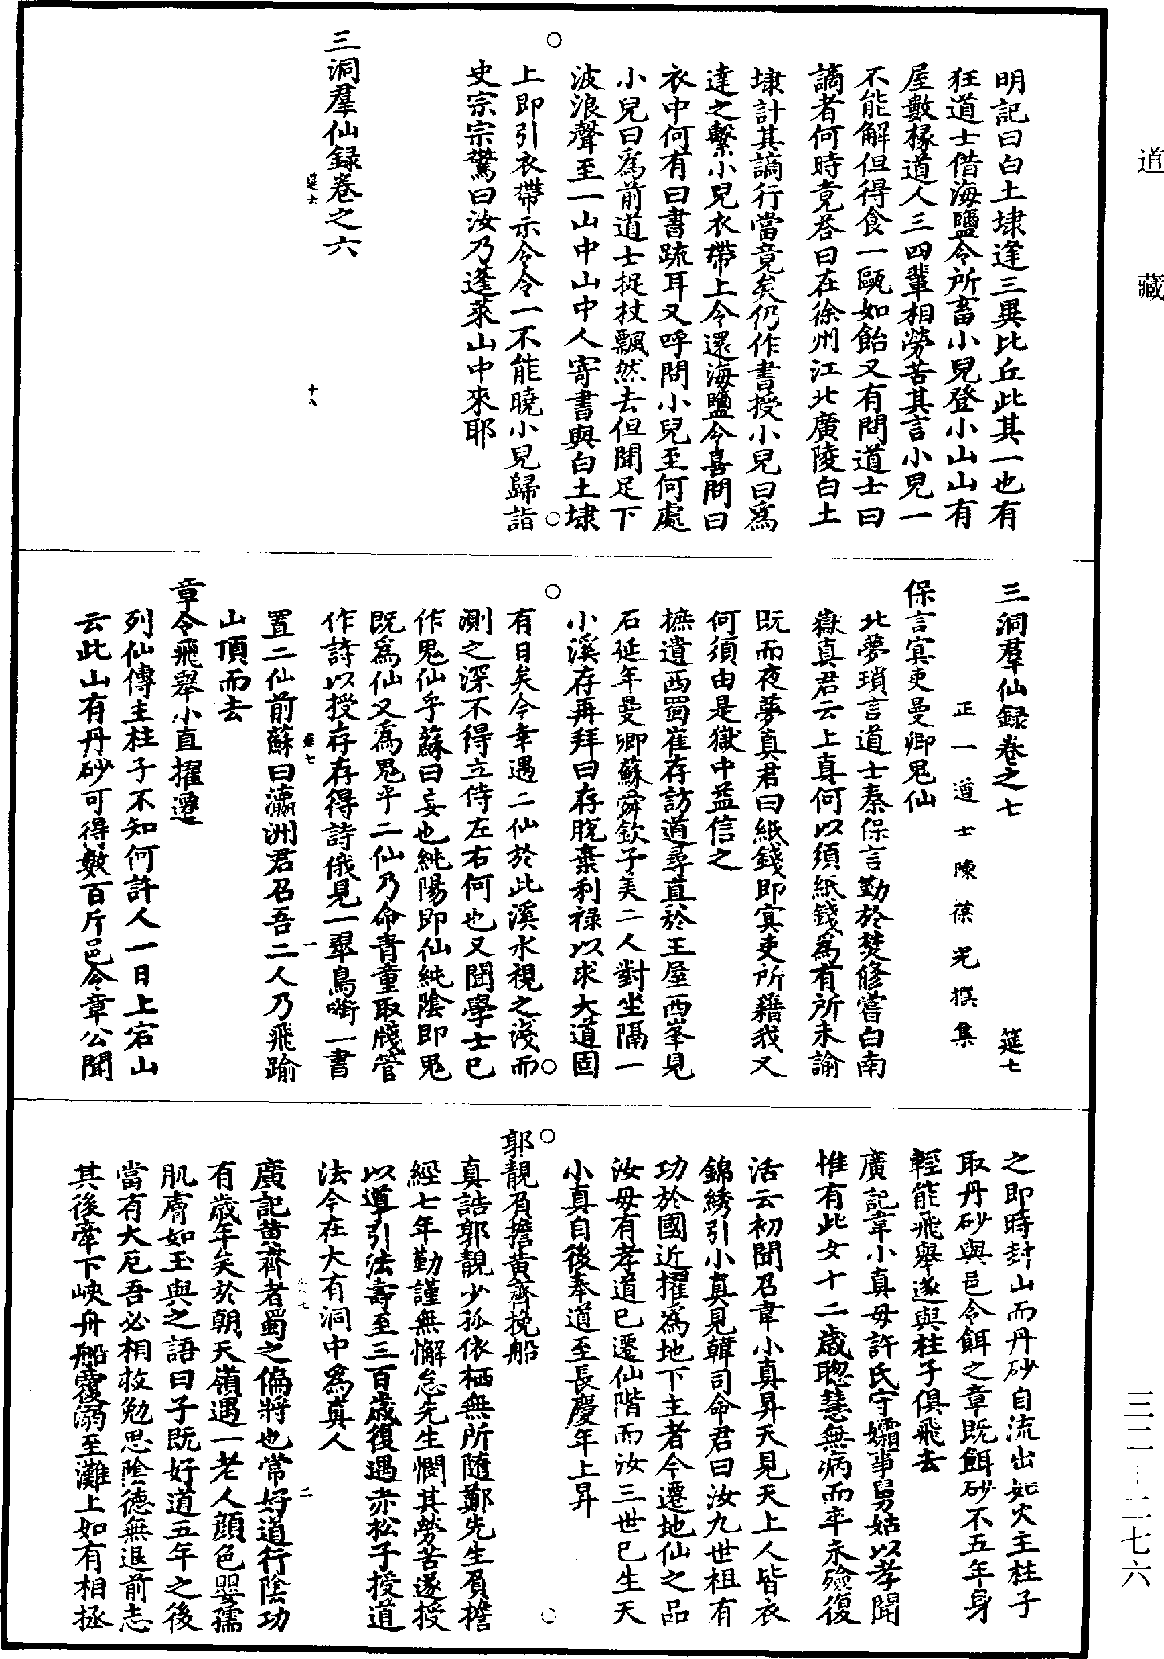 道藏
明記曰白土埭逢三異比丘此其一也有
狂道士借海鹽令所畜小兒登小山山有
屋數椽道人三四輩相勞苦其言小兒一
不能解但得食一甌如飴又有問道士曰
謫者何時竟荅曰在徐州江北廣陵白土
埭計其謫行當竟矣仍作書授小兒曰爲
達之繫小兒衣帶上令還海鹽令喜問曰
衣中何有曰書䟽耳又呼問小兒至何處
小兒曰爲前道士捉杖飄然去但聞足下
波浪聲至一山中山中人寄書與白土埭
上即引衣帶示令令一不能曉小兒歸詣
史宗宗驚曰汝乃蓬萊山中來耶
三洞羣仙録卷之六
筵六
十八
三洞羣仙録卷之七
筵七
正一道士陳葆光撰集
保言寘吏曼卿鬼仙
北夢瑣言道士秦保言勤於焚脩嘗白南
嶽真君云上真何以須紙錢爲有所未諭
既而夜夢真君曰紙錢即寘吏所藉我又
何須由是嶽中益信之
摭遺西蜀崔存訪道尋直於王屋西峯見
石延年曼卿蘇舜欽子美二人對坐隔一
小溪存再拜曰存脫棄利祿以求大道固
有日矣今幸遇二仙於此溪水視之淺而
測之深不得立侍左右何也又聞學士已
作鬼仙乎蘇曰妄也純陽即仙純陰即鬼
既爲仙又爲鬼乎二仙乃命青童取牋管
作詩以授存存得詩俄見一翠鳥啣一書
置二仙前蘇曰瀛洲君召吾二人乃飛踰
山頂而去
筵七
一
章令飛舉小直擢遷
列仙傳主柱子不知何許人一日上宕山
云此山有丹砂可得數百斤邑令章公聞
之即時封山而丹砂自流出如火主柱子
取丹砂與邑令餌之章既餌砂不五年身
輕能飛舉遂與柱子俱飛去
廣記韋小真母許氏守孀事舅姑以孝聞
惟有此女十二歲聰慧無病而卒未殮復
活云初聞召韋小真昇天見天上人皆衣
錦綉引小真見韓司命君曰汝九世祖有
功於國近擢爲地下主者今遷地仙之品
汝母有孝道已遷仙階而汝三世已生天
小真自後奉道至長慶年上昇
郭靚負擔黃齊挽船
真誥郭靚少孤依栖無所隨鄭先生負擔
經七年勤謹無懈怠先生憫其勞苦遂授
以導引法壽至三百歲復遇赤松子授道
法今在大有洞中爲真人
二
廣記黃齊者蜀之偏將也常好道行陰功
有歲年矣於朝天嶺遇一老人顔色嬰孺
肌膚如玉與之語曰子既好道五年之後
當有大厄吾必相救勉思陰德無退前志
其後牽下峽舟船覆溺至灘上如有相拯
三二—二七六